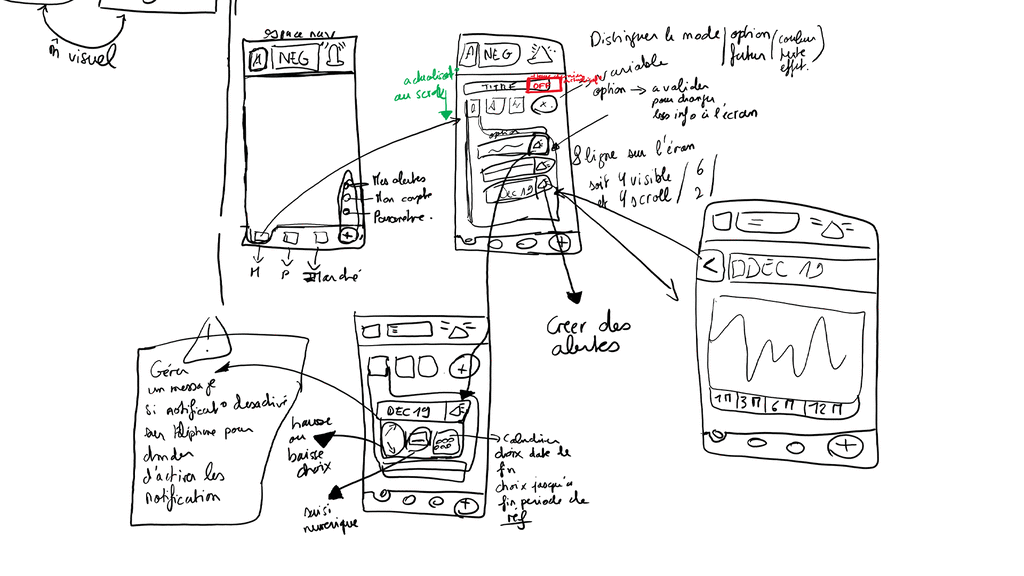 m̂ visuel
espace nav
A NEG
Mes alertes
Mon compte
Paramètre.
M P Marché
A NEG
TITRE OFF
actualisat°
au scroll
option
DEC 19
Distinguer le mode / option
futur / (couleur
texte
effet.)
variable
option → a valider
pour changer
les info à l'écran
8 ligne sur l'écran
soit 4 visible / 6
et 4 scroll / 2
Creer des
alertes
<
DEC 19
1M 3M 6M 12M
!
Gérer
un message
si notificat° desactivé
sur téléphone pour
d'activer les
notification
DEC 19
hausse
ou
baisse
choix
saisi
numerique
Calendrier
choix date de
fin
choix jusqu'à
fin periode de
réf